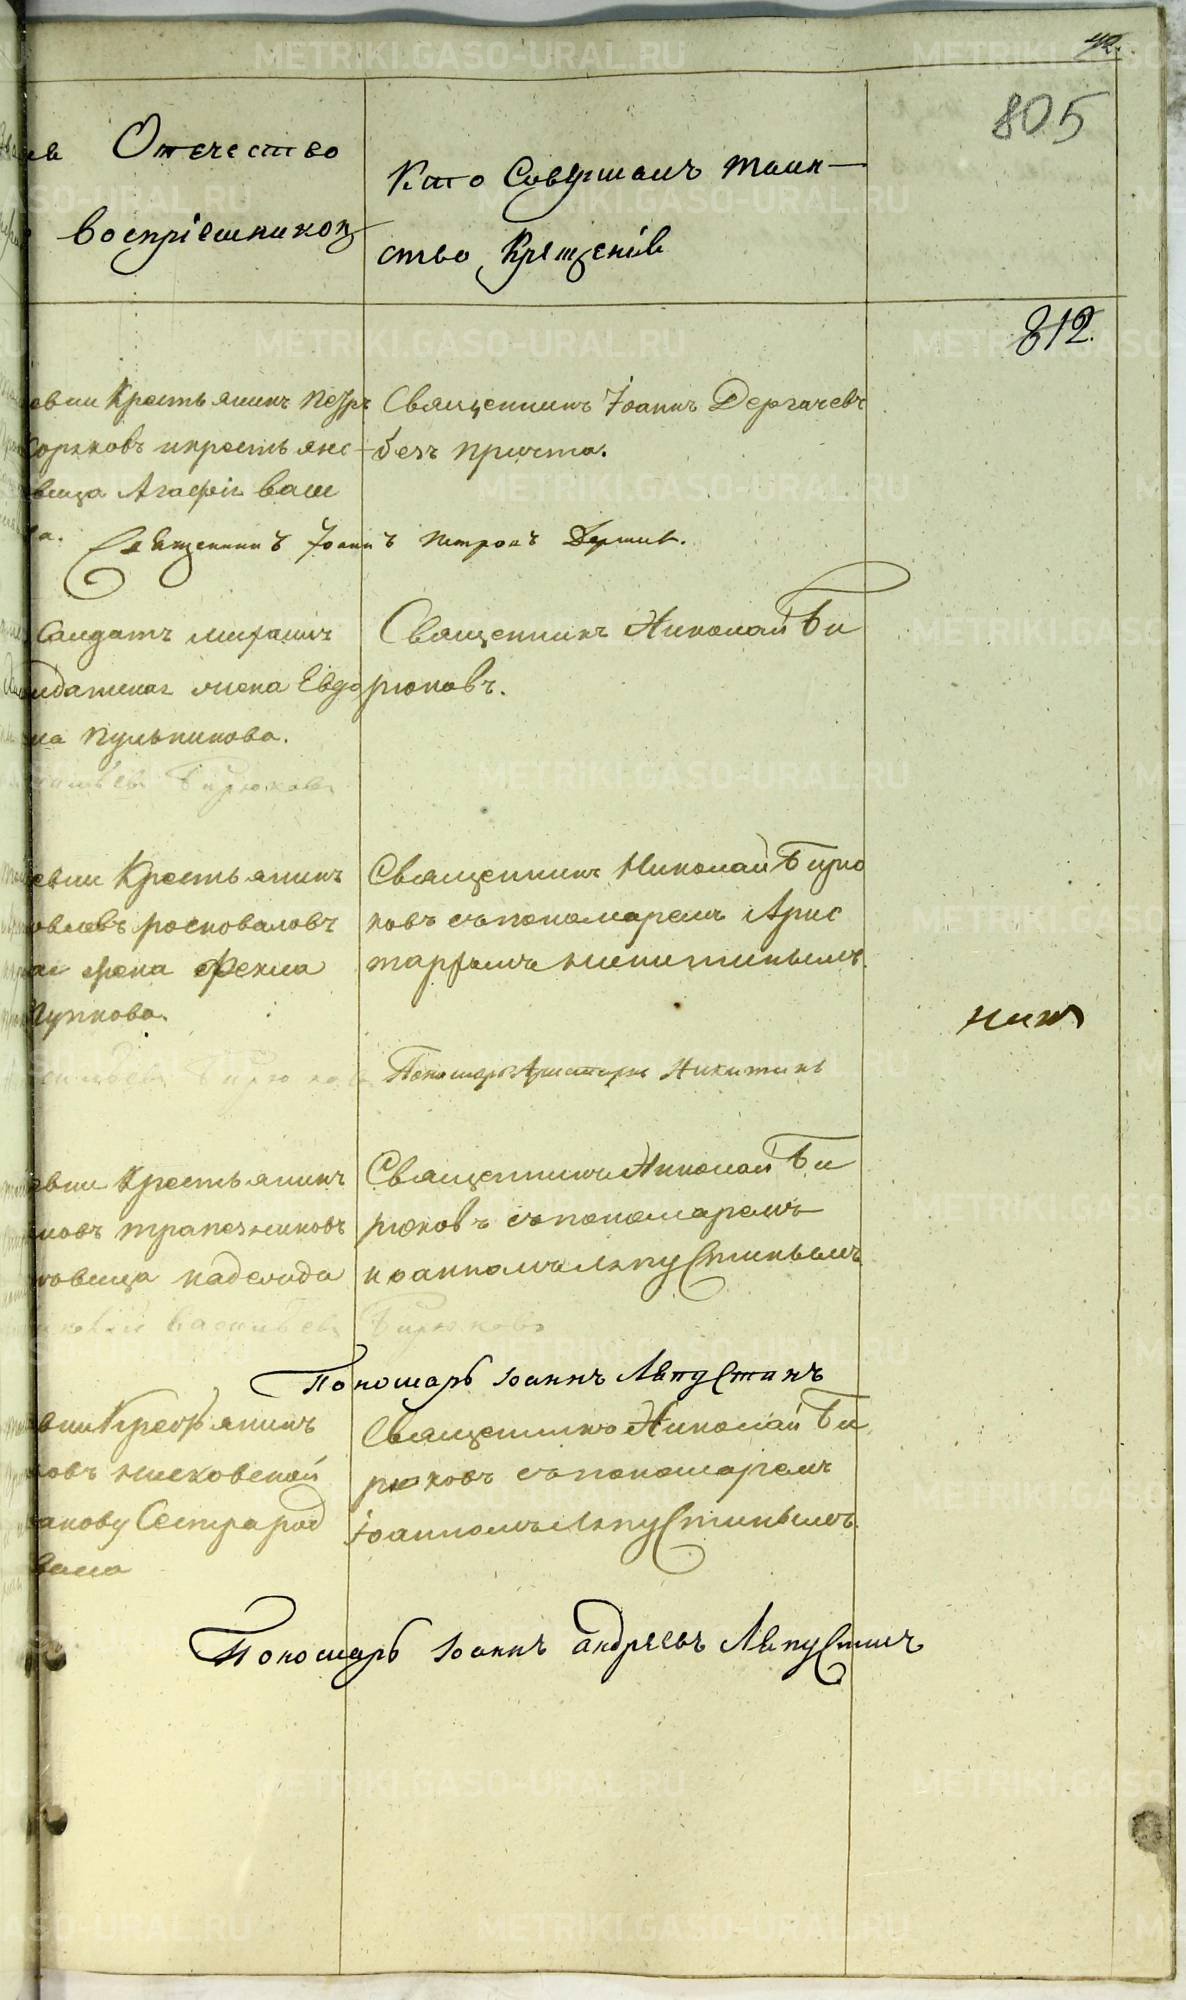 805
въ Отечество
воспріемниковъ
Кто Совершалъ таин-
ство Крещенія
812.
евни Крестьянинъ Петръ
Зорковъ и крестьянс-
вица Агафія ваш
ва.
Священникъ Іоаннъ Дергачевъ
безъ причта.
Священникъ Іоаннъ Петровъ
Салдатъ
лдатская жена Евдо
ма Пульникова.
Бирюковъ
Священникъ Николай Би
рюковъ.
евни Крестьянинъ
овлевъ росковаловъ
ая жена Фекла
Священникъ Николай Бирю
ковъ съ пономаремъ Арис
тархомъ Никитинымъ.
ниж
Бирюковъ
Пономарь Аристархъ Никитинъ
евни Крестьянинъ
новъ трапезниковъ
ковица надежда
Священникъ Николай Би
рюковъ съ пономаремъ
Іоанномъ Ляпустинымъ
колай Васильевъ Бирюковъ
Пономарь Іоаннъ Ляпустинъ
вни Крестьянинъ
анову Сестра род
Священникъ Николай Би
рюковъ съ пономаремъ
Іоанномъ Ляпустинымъ.
Пономарь Іоаннъ андреевъ Ляпустинъ
METRIKI.GASO-URAL.RU